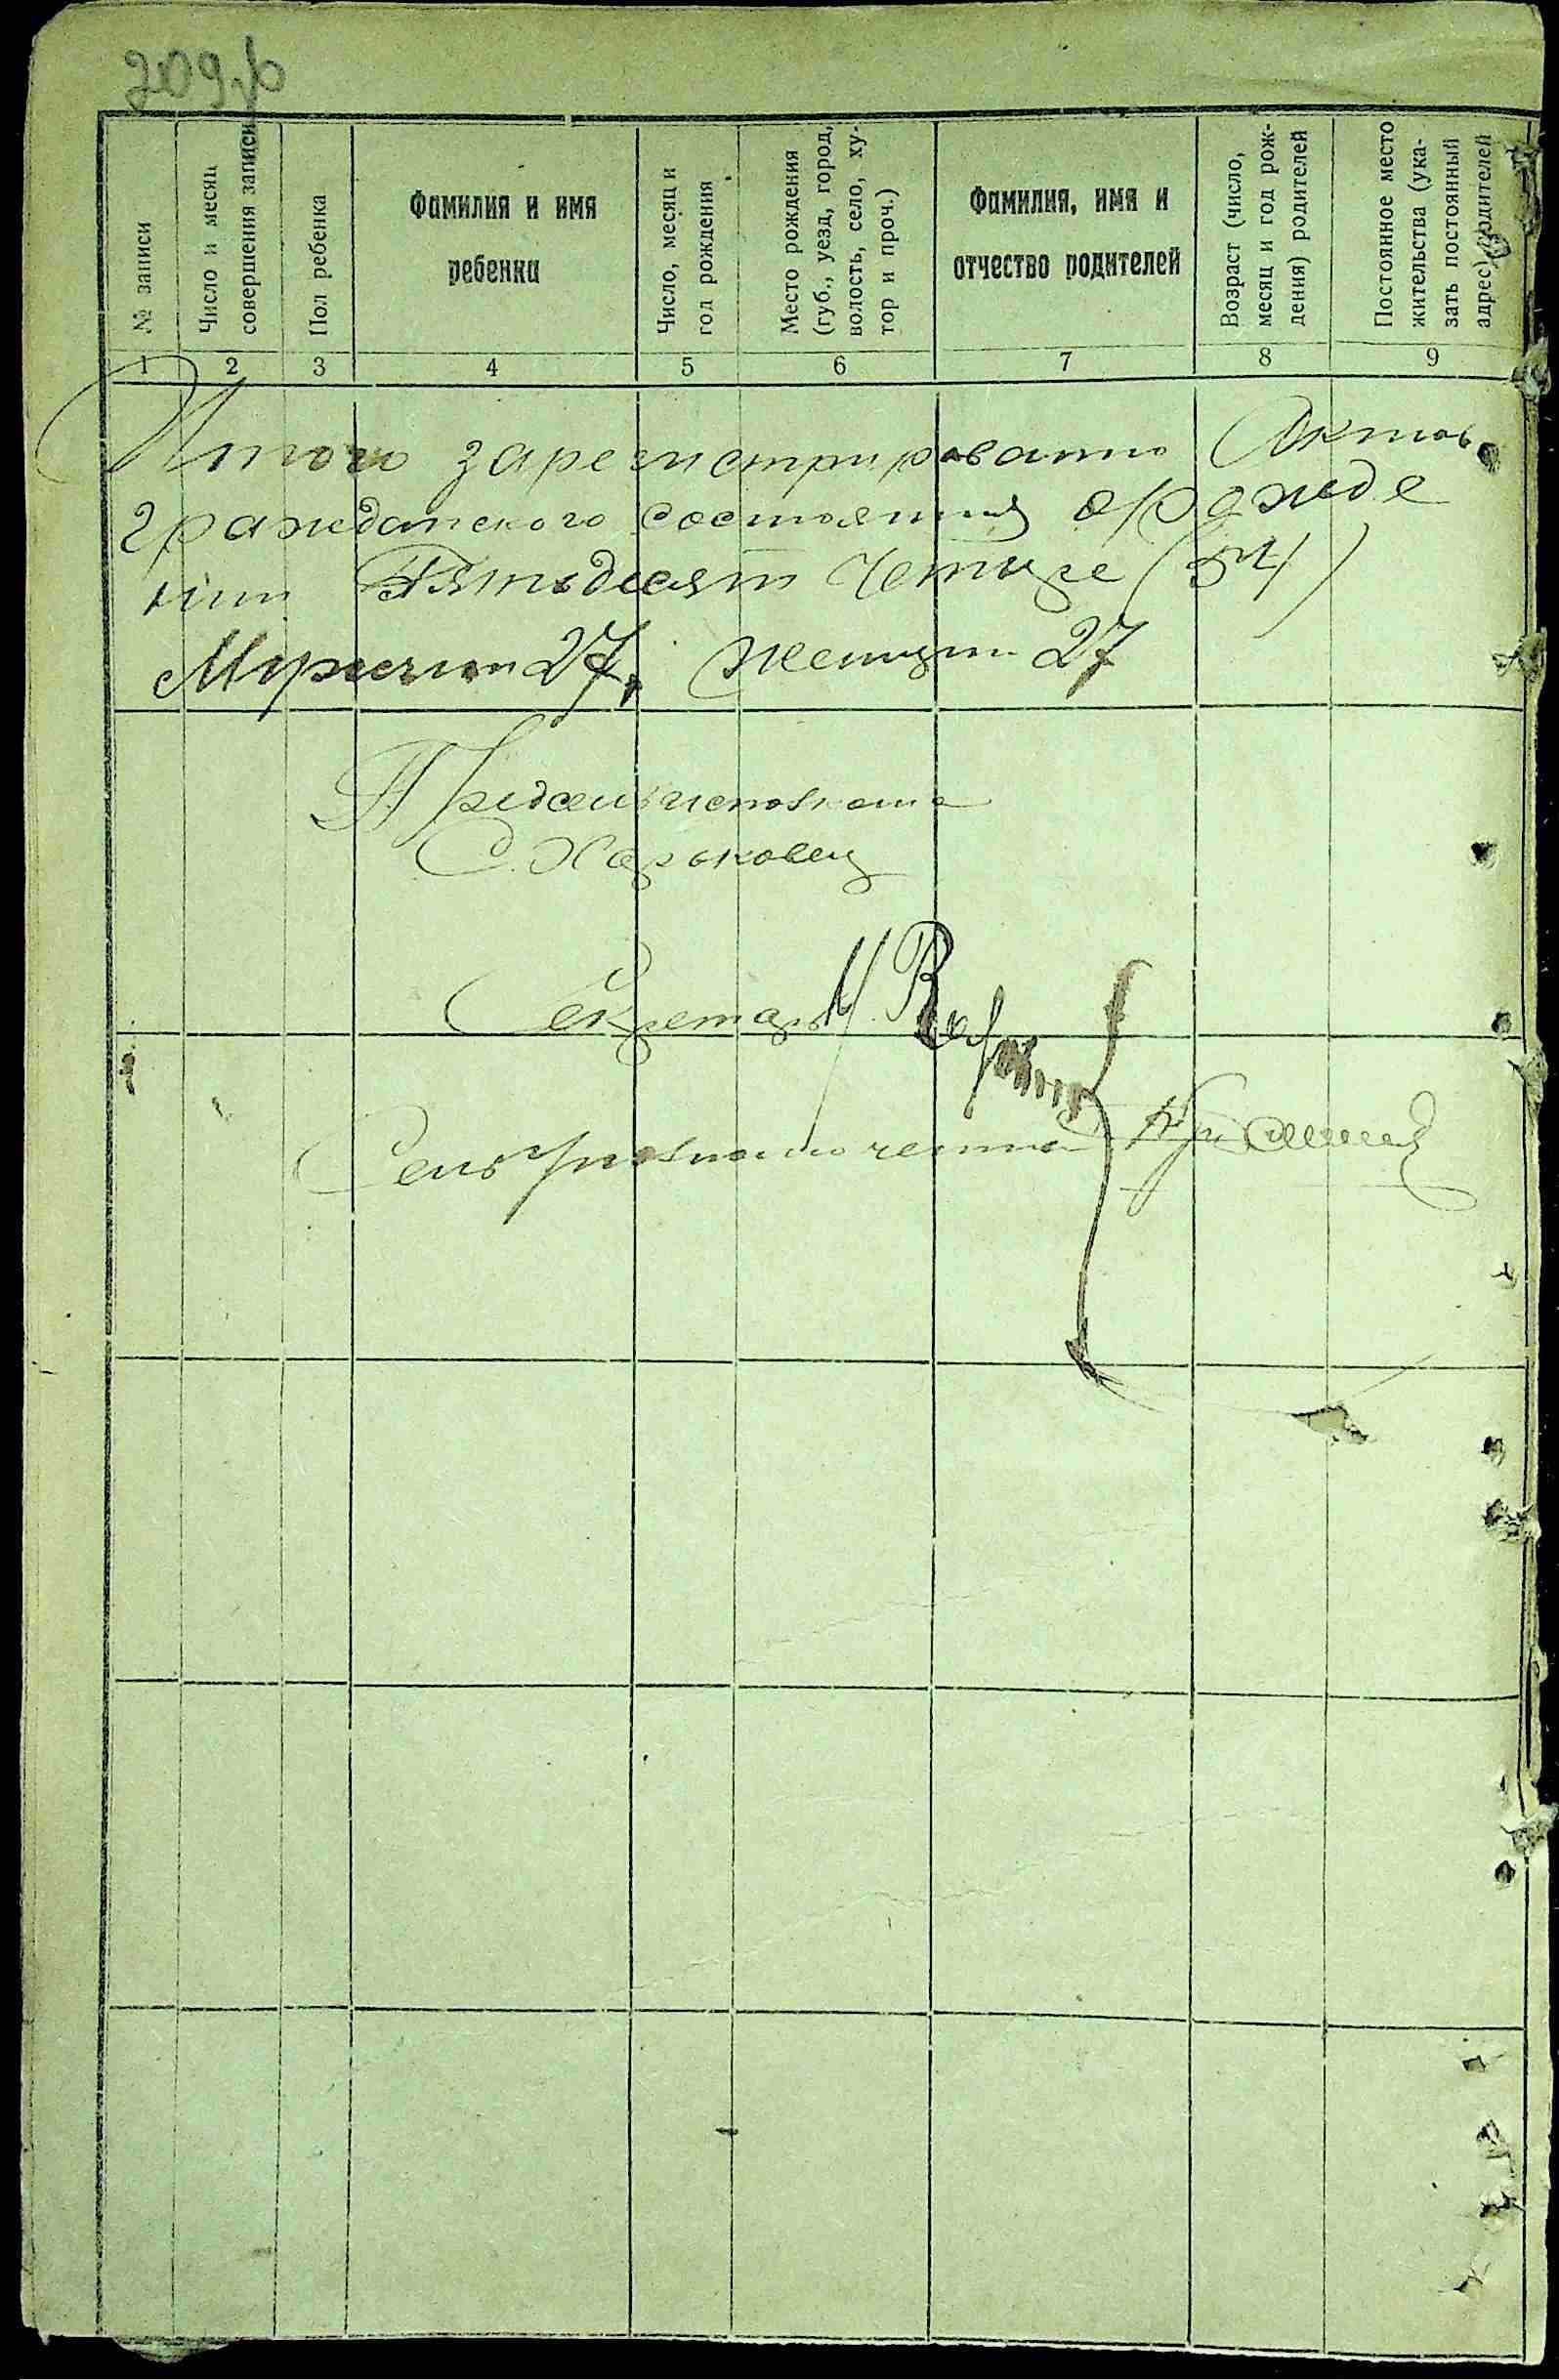 209
№ записи
Число и месяц
совершения записи
Пол ребенка
Фамилия и имя
ребенка
Число, месяц и
год рождения
Место рождения
(губ., уезд, город,
волость, село, ху-
тор и проч.)
Фамилия, имя и
отчество родителей
Возраст (число,
месяц и год рож-
дения) родителей
Постоянное место
жительства (ука-
зать постоянный
адрес) родителей
1 2 3 4 5 6 7 8 9
Итого зарегистрировано Актов
гражданского состояния о рожде
нии Пятьдесят Четыре (54)
Мужчин 27, женщин 27
Предсельисполкома
С. Харьковец
Секретарь
Сельуполномоченный